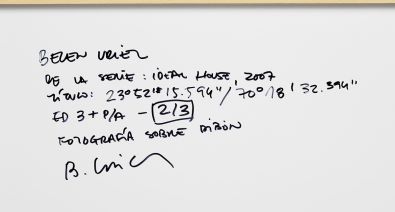 BELEN URIEL
DE LA SERIE: IDEAL HOUSE, 2007
TÍTULO: 23º52'15.594"/70º18'32.394"
ED 3 + P/A - 2/3
FOTOGRAFÍA SOBRE DIBON
B. Uriel